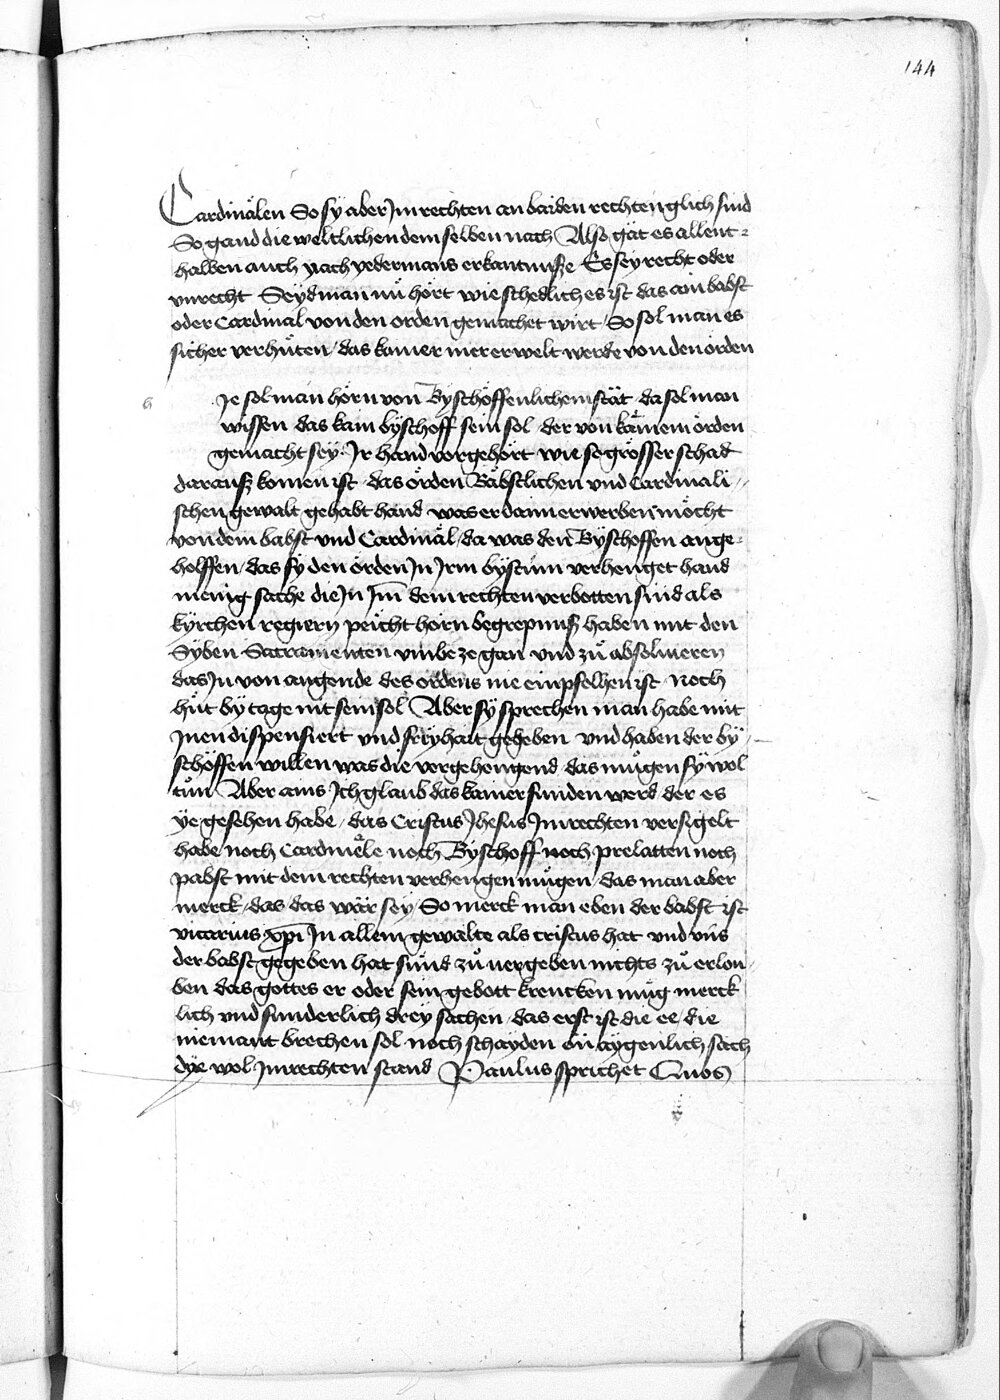 144
Cardinälen So sÿ aber Jm rechten an baiden rechten glich sind
So gand die weltlichen demselben nach Also gät es allent=
halben auch nach yedermans erkantnusze Es sey recht oder
vnrecht Seyd man nu hört wie schedlich es ist das ain babst
oder Cardinal von den orden gemachet wirt / So sol man es
sicher verhüten / das kainer mer erwelt werde von den örden
h
Je sol man hörn von Byschöffenlichem stät da sol man
wissen das kain bÿschoff sein sol der von kainem örden
gemacht seÿ Jr hand vorgehört wie so grösser schad
darausz komen ist das örden Bäbstlichen vnd Cardinali=
schen gewalt gehabt hand was er dann erwerben möcht
von dem babst vnd Cardinäl / da was den Byschoffen ange=
holffen / das sÿ den örden Jn Jrm bystum verhenget hand
menig sache die Jn Jm dem rechten verbotten sind als
kÿrchen regiern peicht hörn begrepnusz haben mit den
Syben Sacramenten vmbe ze gan vnd zů absoluieren
das Jn von angende des ordens nie empfelhen ist noch
hüt by tage nit sein sol Aber sÿ sprechen man habe mit
Jnen dispensiert vnd friyhait gegeben vnd haben der by=
schöffen willen was die vergehengend das mügen sÿ wol
tůn Aber ains Jch glaub das kainer funden werd der es
ÿe gesehen habe / das Cristus Jhesus Jm rechten versigelt
habe noch Cardinële noch Byschoff noch prelatten noch
pabst mit dem rechten verhengen mügen das man aber
merck das das wär sey / So merck man eben der babst ist
vicarius xpi Jn allem gewalte als cristus hat vnd vns
der babst gegeben hat sünd zů vergeben nichts zů erlou=
ben das gottes er oder sein gebott krencken müg merck
lich vnd sunderlich drey sachen das erst ist die ee die
niemant brechen sol noch schayden on aygenlich sach
dye wol Jm rechten stand Paulus sprichet Quos